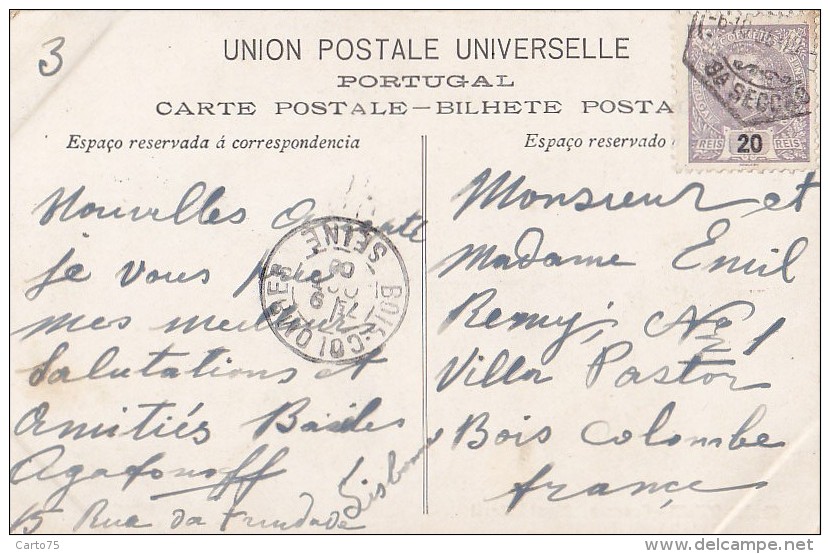 3
UNION POSTALE UNIVERSELLE
PORTUGAL
CARTE POSTALE—BILHETE POSTA
Espaço reservada á correspondencia
Espaço reservado
8A SECCAO
REIS 20 REIS
Nouvelles
je vous
mes
Salutations et
Amitiés
Agafonoff
15 Rua da Trindade
Lisbonne
BOIS-COLOMBES
SEINE
Monsieur et
Madame Emil
Remy, No 1
Villa Pastor
Bois Colombe
France
Carto75
www.delcampe.net